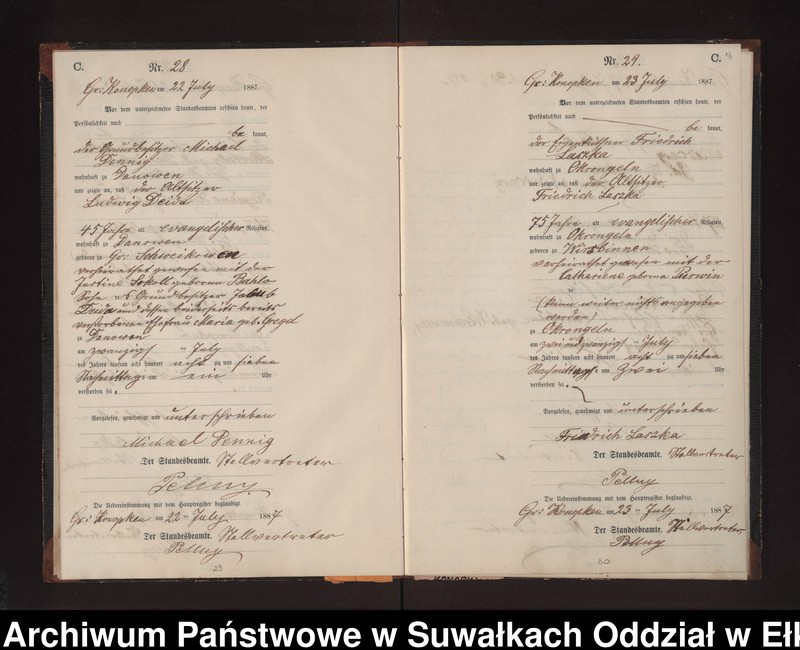 C. Nr. 28
Gr: Konopken am 22 July 1887.
Vor dem unterzeichneten Standesbeamten erschien heute, der
Persönlichkeit nach
be kannt,
der Grundbesitzer Michael
Dennig
wohnhaft zu Danowen
und zeigte an, daß der Altsitzer
Ludwig Deida
45 Jahre alt evangelischer Religion,
wohnhaft zu Danowen
geboren zu Gr: Schweikowen
verheirathet gewesen mit der
Justine Sokoll geborene Bahlo
Sohn des Grundbesitzer Jakub
Deida und dessen beiderseits bereits
verstorbene Ehefrau Maria geb:
zu Danowen
am zwanzigst ten July
des Jahres tausend acht hundert acht zig und sieben
Nachmittag um ein Uhr
verstorben sei.
Vorgelesen, genehmigt und unterschrieben
Michael Dennig
Der Standesbeamte. Stellvertreter
Pellny
Die Uebereinstimmung mit dem Hauptregister beglaubigt.
Gr: Konopken am 22 ten July 1887
Der Standesbeamte. Stellvertreter
Pellny
29
Nr. 29. C. 8
Gr: Konopken am 23 July 1887.
Vor dem unterzeichneten Standesbeamten erschien heute, der
Persönlichkeit nach
be kannt,
der Eigenkäthner Friedrich
Laszka
wohnhaft zu Okrongeln
und zeigte an, daß der Altsitzer
Friedrich Laszka
75 Jahre alt evangelischer Religion,
wohnhaft zu Okrongeln
geboren zu Wirsbinnen
verheirathet gewesen mit der
Cathariene geborne Perwin
(kann weiter nichts angegeben
werden)
zu Okrongeln
am zwei und zwanzigst ten July
des Jahres tausend acht hundert acht zig und sieben
Nachmittags um zwei Uhr
verstorben sei.
Vorgelesen, genehmigt und unterschrieben
Friedrich Laszka
Der Standesbeamte. Stellvertreter
Pellny
Die Uebereinstimmung mit dem Hauptregister beglaubigt.
Gr: Konopken am 23 ten July 1887
Der Standesbeamte. Stellvertreter
Pellny
30
Archiwum Państwowe w Suwałkach Oddział w Ełk